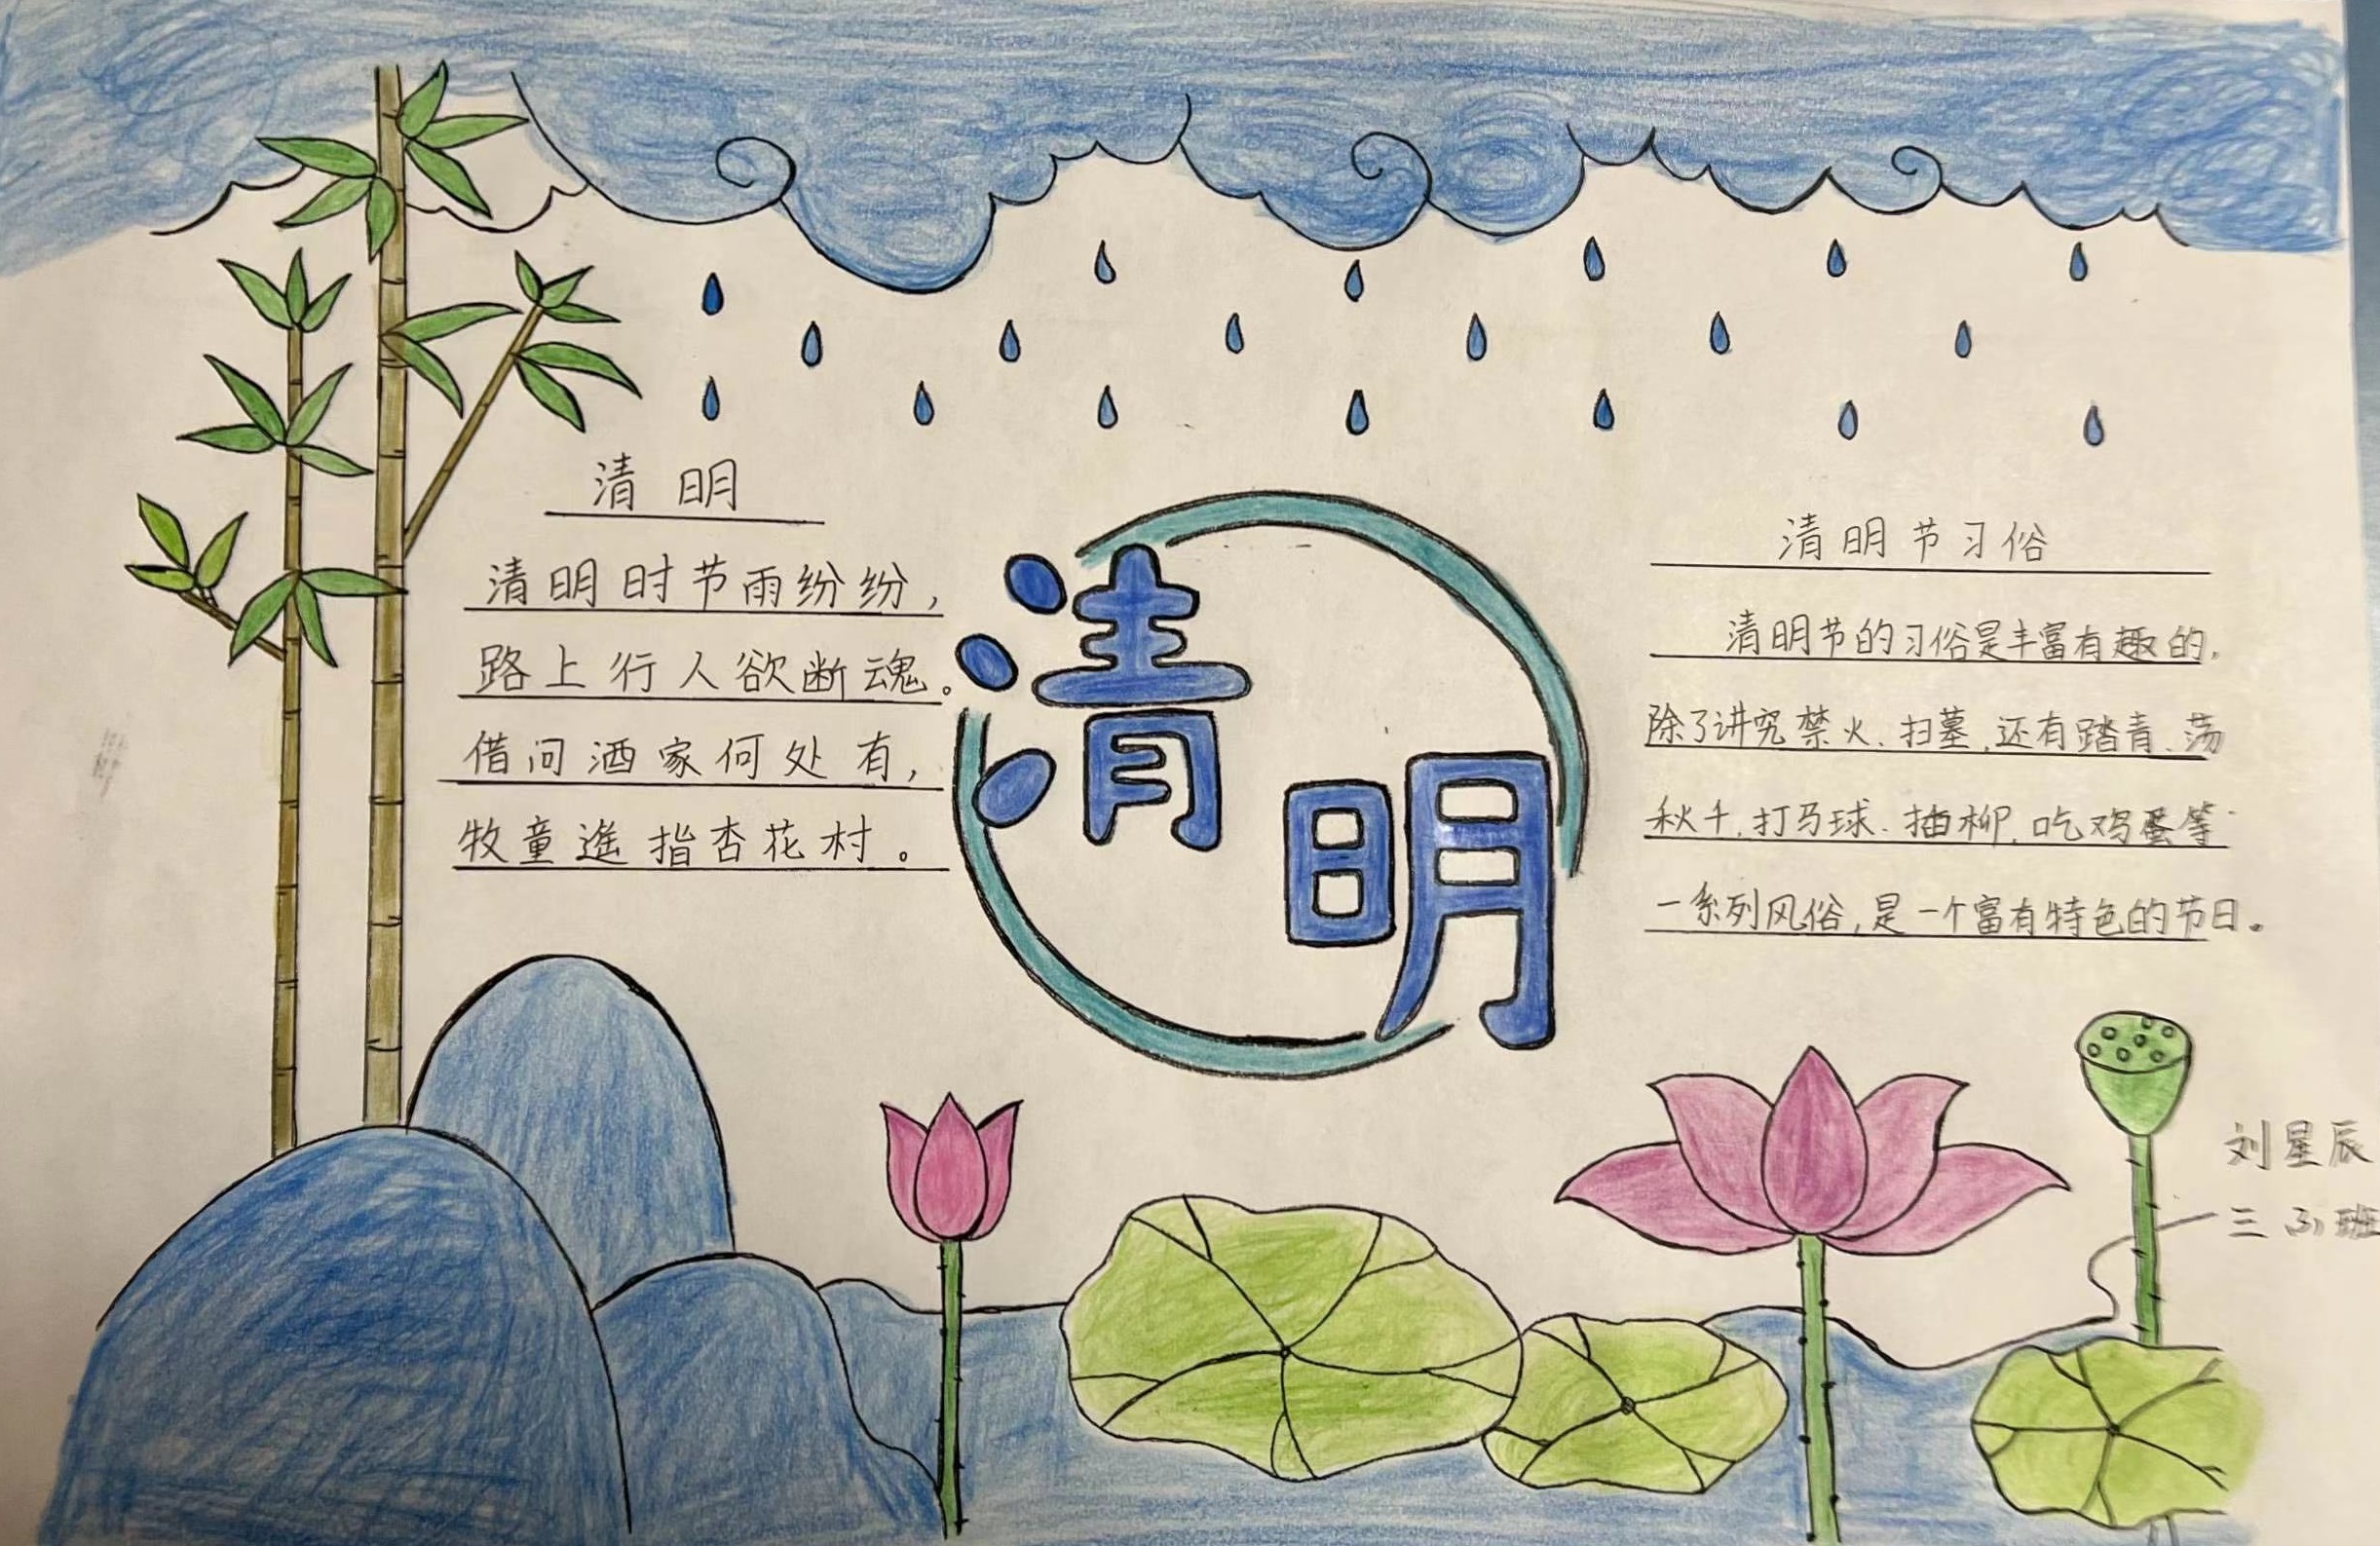 清明
清明时节雨纷纷，
路上行人欲断魂。
借问酒家何处有，
牧童遥指杏花村。
清明
清明节习俗
清明节的习俗是丰富有趣的，
除了讲究禁火、扫墓，还有踏青、荡
秋千、打马球、插柳、吃鸡蛋等
一系列风俗，是一个富有特色的节日。
刘星辰
三(3)班